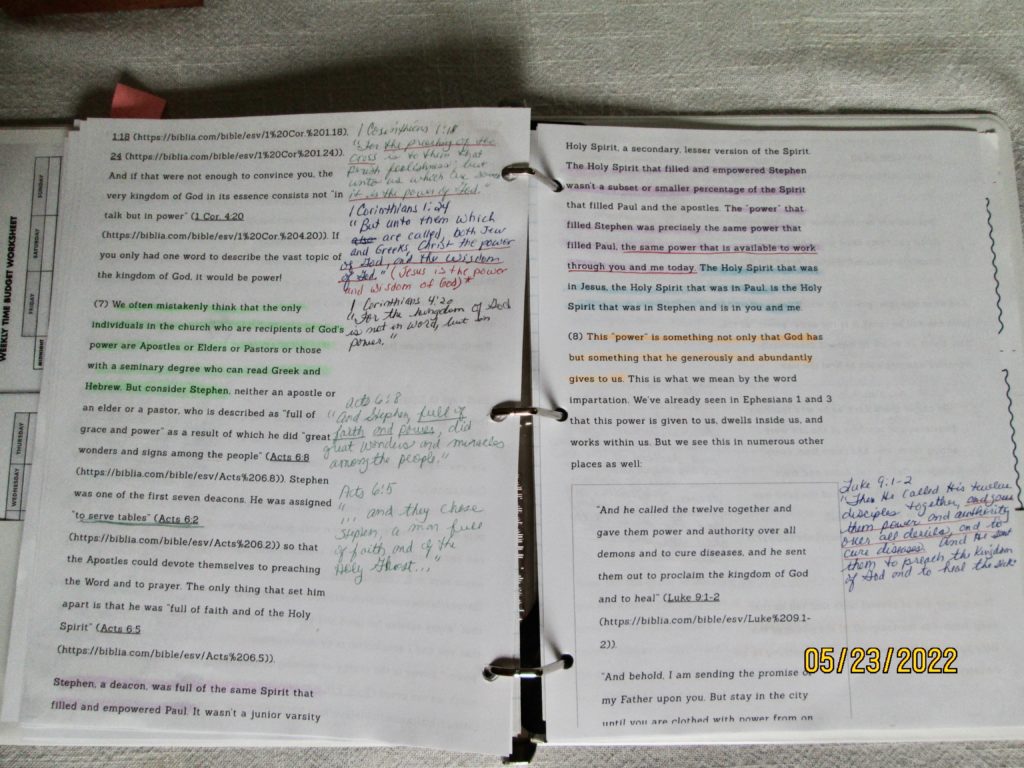 WEEKLY TIME BUDGET WORKSHEET
SUNDAY
SATURDAY
FRIDAY
THURSDAY
WEDNESDAY
1:18 (https://biblia.com/bible/esv/1%20Cor.%201.18),
24 (https://biblia.com/bible/esv/1%20Cor%201.24)).
And if that were not enough to convince you, the
very kingdom of God in its essence consists not "in
talk but in power" (1 Cor. 4:20
(https://biblia.com/bible/esv/1%20Cor.%204.20)). If
you only had one word to describe the vast topic of
the kingdom of God, it would be power!
(7) We often mistakenly think that the only
individuals in the church who are recipients of God's
power are Apostles or Elders or Pastors or those
with a seminary degree who can read Greek and
Hebrew. But consider Stephen, neither an apostle or
an elder or a pastor, who is described as "full of
grace and power" as a result of which he did "great
wonders and signs among the people" (Acts 6:8
(https://biblia.com/bible/esv/Acts%206.8)). Stephen
was one of the first seven deacons. He was assigned
"to serve tables" (Acts 6:2
(https://biblia.com/bible/esv/Acts%206.2)) so that
the Apostles could devote themselves to preaching
the Word and to prayer. The only thing that set him
apart is that he was "full of faith and of the Holy
Spirit" (Acts 6:5
(https://biblia.com/bible/esv/Acts%206.5)).
Stephen, a deacon, was full of the same Spirit that
filled and empowered Paul. It wasn't a junior varsity
1 Corinthians 1:18
"For the preaching of the
cross is to them that
perish foolishness; but
unto us which are
it is the power of God."
1 Corinthians 1:24
"But unto them which
are called, both Jew
and Greeks, Christ the power
of God, and the Wisdom
of God." (Jesus is the power
and wisdom of God)*
1 Corinthians 4:20
"For the kingdom of God
is not in word, but in
power."
Acts 6:8
"And Stephen, full of
faith and power, did
great wonders and miracles
among the people."
Acts 6:5
"... and they chose
Stephen, a man full
of faith and of the
Holy Ghost..."
Holy Spirit, a secondary, lesser version of the Spirit.
The Holy Spirit that filled and empowered Stephen
wasn't a subset or smaller percentage of the Spirit
that filled Paul and the apostles. The "power" that
filled Stephen was precisely the same power that
filled Paul, the same power that is available to work
through you and me today. The Holy Spirit that was
in Jesus, the Holy Spirit that was in Paul, is the Holy
Spirit that was in Stephen and is in you and me.
(8) This "power" is something not only that God has
but something that he generously and abundantly
gives to us. This is what we mean by the word
impartation. We've already seen in Ephesians 1 and 3
that this power is given to us, dwells inside us, and
works within us. But we see this in numerous other
places as well:
"And he called the twelve together and
gave them power and authority over all
demons and to cure diseases, and he sent
them out to proclaim the kingdom of God
and to heal" (Luke 9:1-2
(https://biblia.com/bible/esv/Luke%209.1-
2)).
"And behold, I am sending the promise of
my Father upon you. But stay in the city
until you are clothed with power from on
Luke 9:1-2
"Then He called His twelve
disciples together, and gave
them power and authority
over all devils, and to
cure diseases. And He sent
them to preach the kingdom
of God and to heal the sick."
05/23/2022